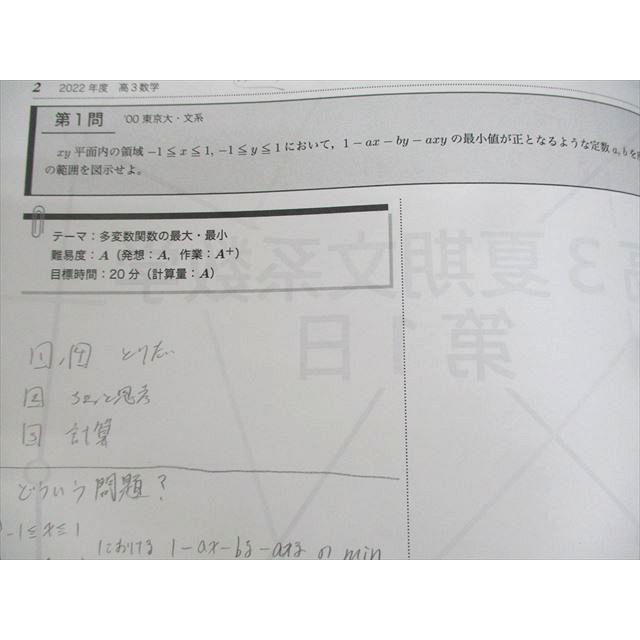 2 2022年度 高3数学
第1問 '00 東京大・文系
xy 平面内の領域 −1≦x≦1, −1≦y≦1 において, 1−ax−by−axy の最小値が正となるような定数 a, b を
の範囲を図示せよ。
テーマ：多変数関数の最大・最小
難易度：A（発想：A, 作業：A⁺）
目標時間：20分（計算量：A）
高3夏期文系数学
第1日
1, 4 とりたい
2 ちょっと思考
3 計算
どういう問題？
-1≦x≦1
における 1-ax-by-axy の min